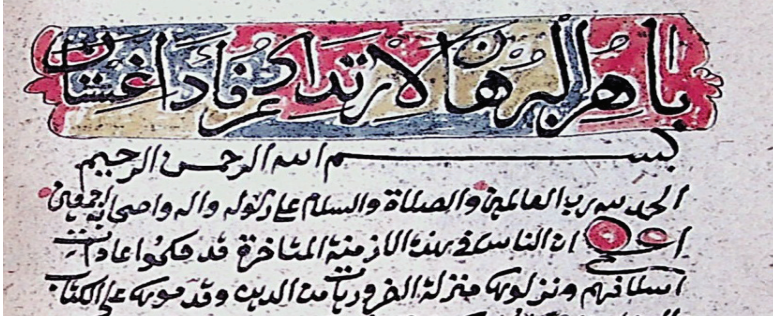 باهر البرهان لارتداد عرفاء داغستان
بسم الله الرحمن الرحيم
الحمد لله رب العالمين والصلاة والسلام على رسوله واله واصحابه اجمعين
ان الناس في هذه الازمنة المتاخرة قد حكموا عادات
اسلافهم ونزلوها منزلة الضروريات من الدين وقدموها على الكتاب